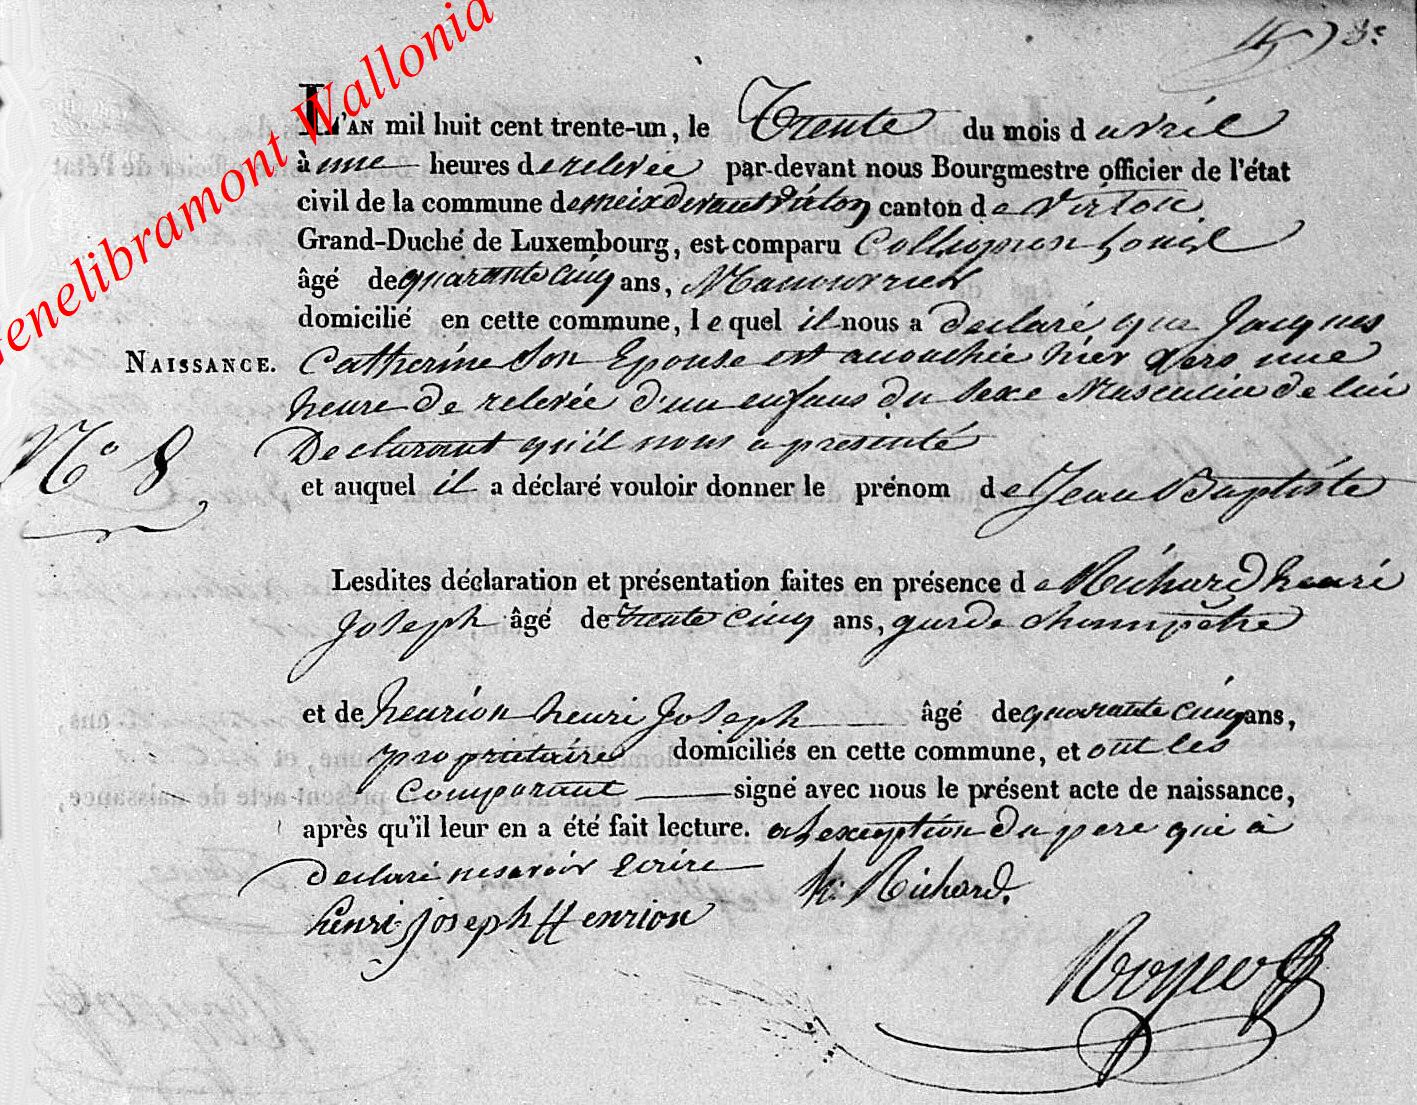 Genelibramont Wallonia
L'AN mil huit cent trente-un, le Trente du mois d avril
à une heures de relevée par-devant nous Bourgmestre officier de l'état
civil de la commune de meix devant Virton canton de Virton
Grand-Duché de Luxembourg, est comparu Collignon Louis
âgé de quarante cinq ans, Manouvrier
domicilié en cette commune, lequel il nous a declaré que Jacques
NAISSANCE. Catherine Son Epouse est accouchée hier vers une
heure de relevée d'un enfans du Sexe Masculin de lui
N° 8 Declarant qu'il nous a presenté
et auquel il a déclaré vouloir donner le prénom de Jean Baptiste
Lesdites déclaration et présentation faites en présence de Richard henri
Joseph âgé de trente cinq ans, garde champêtre
et de henrion henri Joseph âgé de quarante cinq ans,
propriétaire domiciliés en cette commune, et ont les
Comparant signé avec nous le présent acte de naissance,
après qu'il leur en a été fait lecture. a L'exception du pere qui a
Declaré ne savoir Ecrire
h. Richard.
henri joseph Henrion